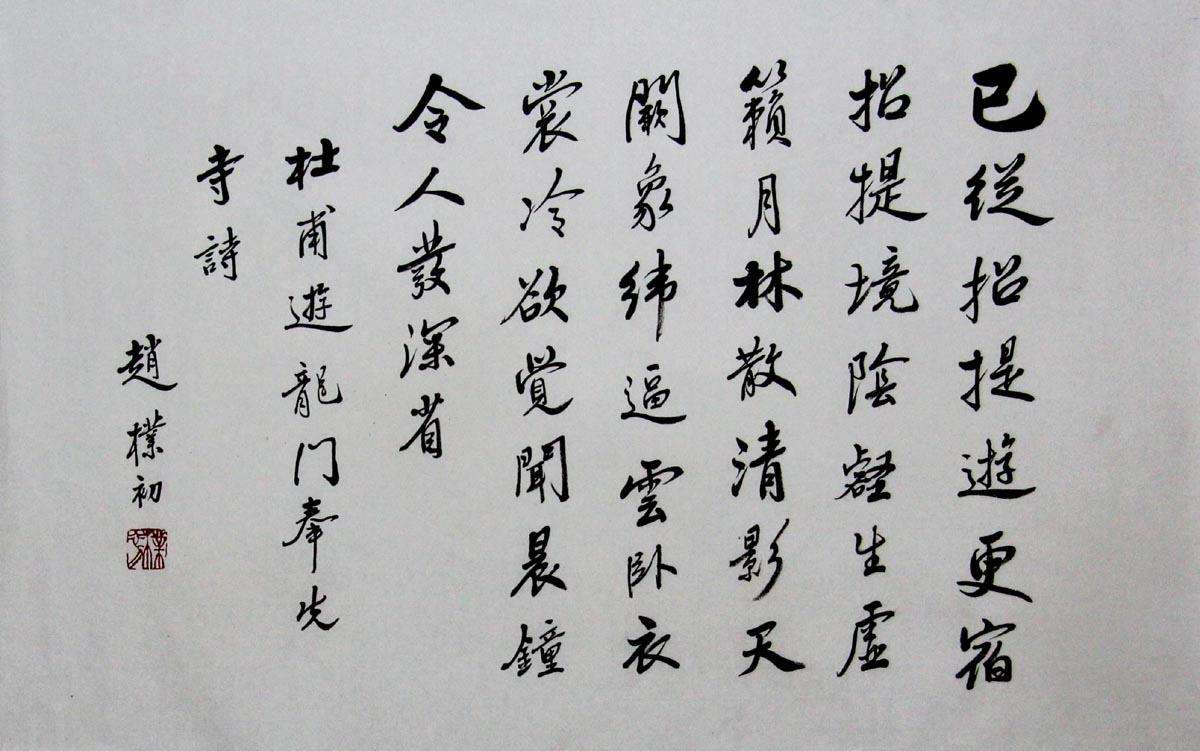 已從招提遊更宿
招提境陰壑生虛
籟月林散清影天
闕象緯逼雲卧衣
裳冷欲覺聞晨鐘
令人發深省
杜甫遊龍门奉先
寺詩
趙樸初
樸初